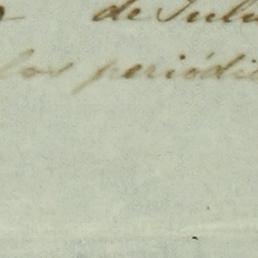 de Julu
los periódi